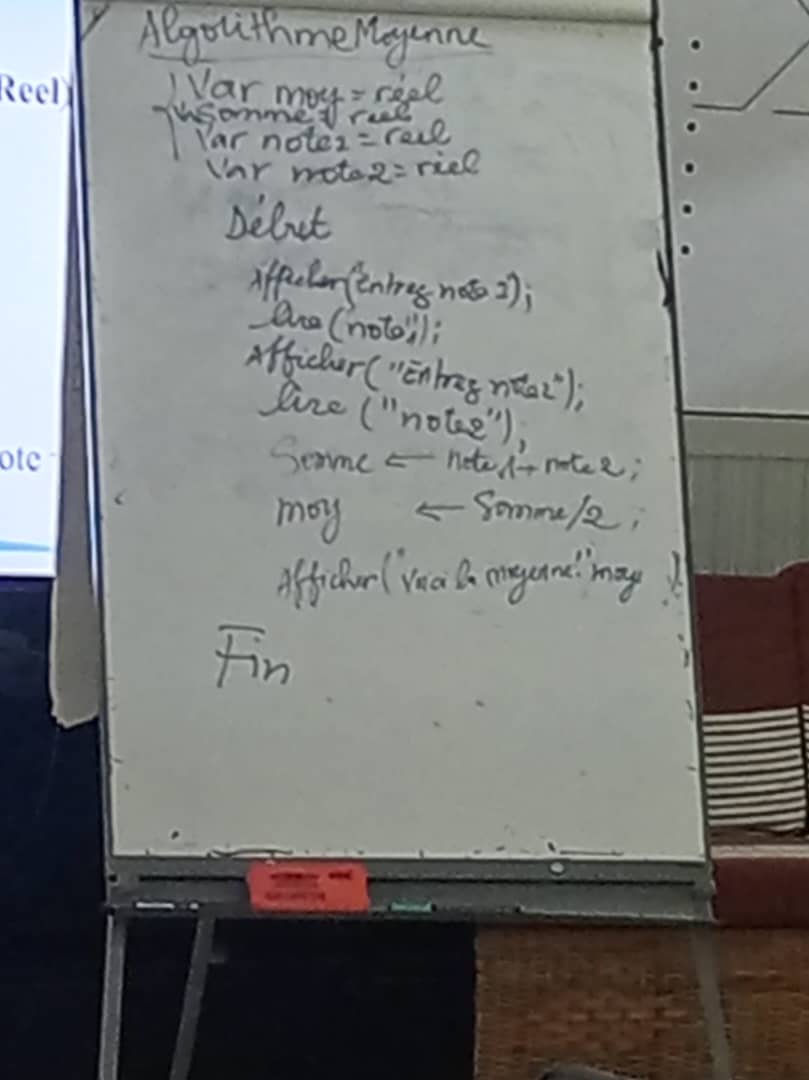 Reel)
ote
Algorithme Moyenne
Var moy = réel
Somme = reel
Var note1 = reel
Var note2 = réel
Début
Afficher("Entrez note 1");
lire (note1);
Afficher("Entrez note2");
lire ("note2");
Somme ← note 1 + note 2;
moy ← Somme/2;
Afficher("Voici la moyenne:" moy );
Fin